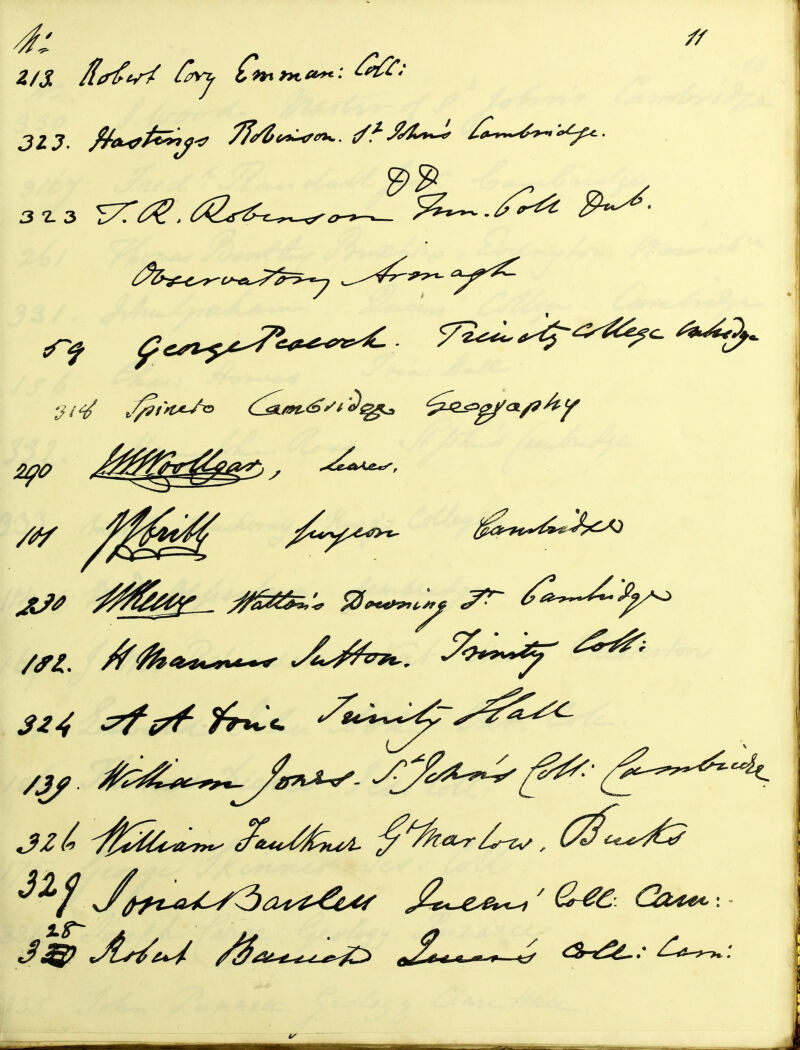 No. 11
213. Robert Cory Emman: Coll:
323. Hastings Robinson. St. John's Cambridge.
DD
323 T. R. Robinson Trin. Coll Dub.
Observatory Armagh
59 George Peacock. Trinity College
318 Spineto Cambridge Geography
290 J.W. Woollgar, Lewes.
101 Surgeon Cambridge
230 Watton's Downing St. Cambridge
182. H Manners Sutton. Trinity Coll:
324 A A Trinity Hall
139. William Jones. St. John's Coll: Cambridge
326 William Faulkner Gt Marlow, Bucks
329 Josiah Bartlett Queens' Coll: Cam:
28
3 Robert Queen's Coll: Cam: